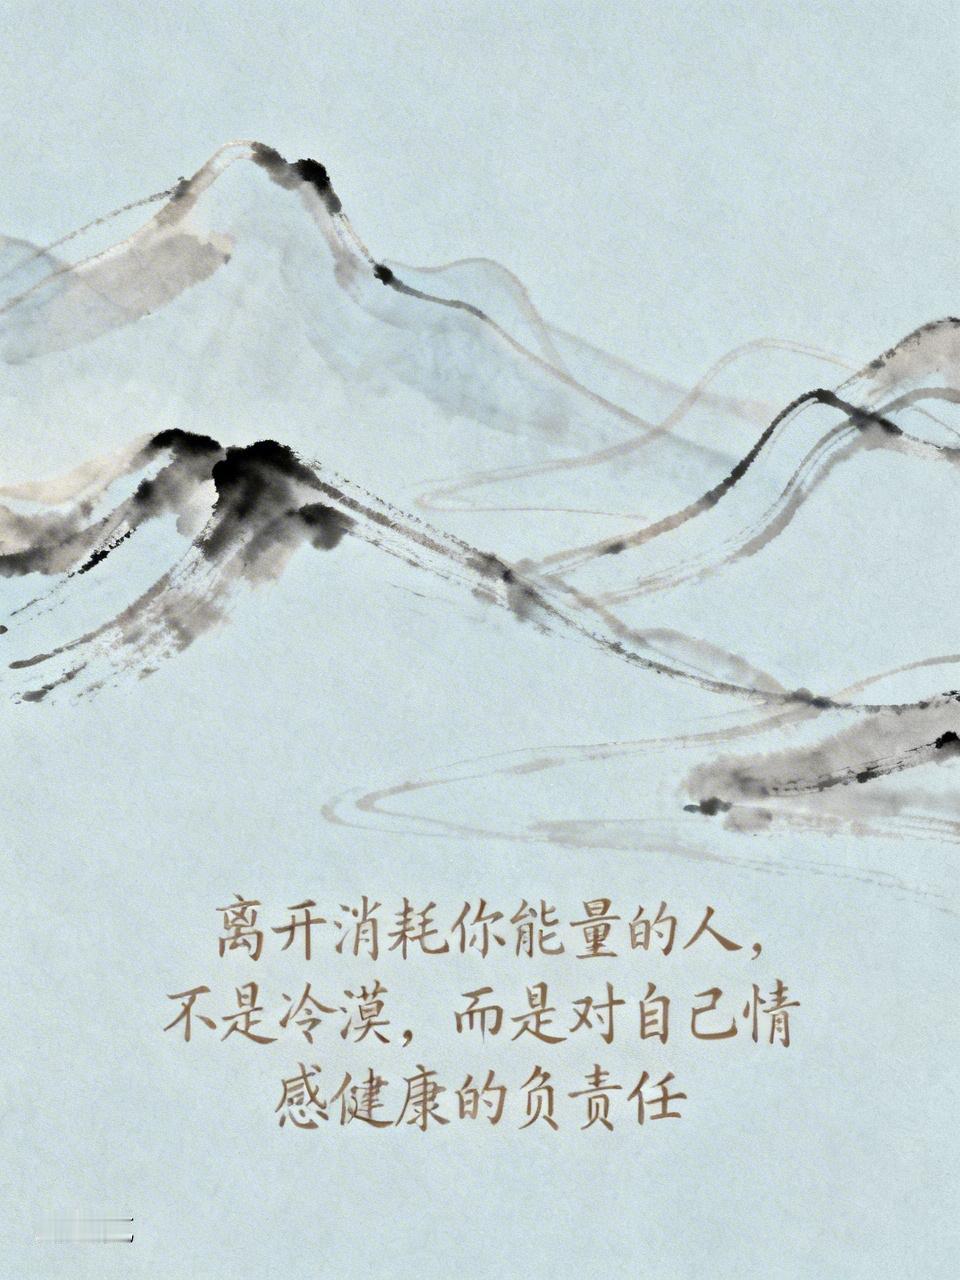 离开消耗你能量的人，
不是冷漠，而是对自己情
感健康的负责任